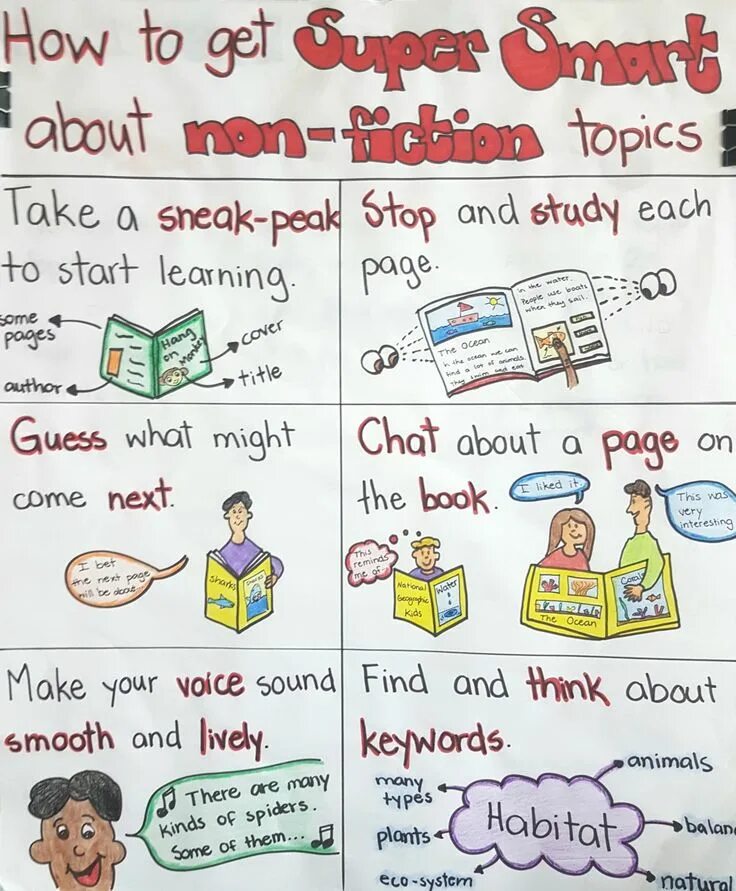 How to get Super Smart
about non-fiction topics
Take a sneak-peak
to start learning.
some
pages
author
Hang
on
Monkey
cover
title
Stop and study each
page.
The Ocean
In the ocean we can
find a lot of animals.
They swim and eat
in the water.
People use boats
when they sail.
Guess what might
come next.
I bet
the next page
will be about...
Sharks
Sharks
Chat about a page on
the book.
This
reminds
me of...
National
Geographic
Kids
Water
I liked it.
This was
very
interesting
Corals
The Ocean
Make your voice sound
smooth and lively.
There are many
kinds of spiders.
Some of them...
Find and think about
keywords.
many
types
plants
eco-system
Habitat
animals
balan
natural